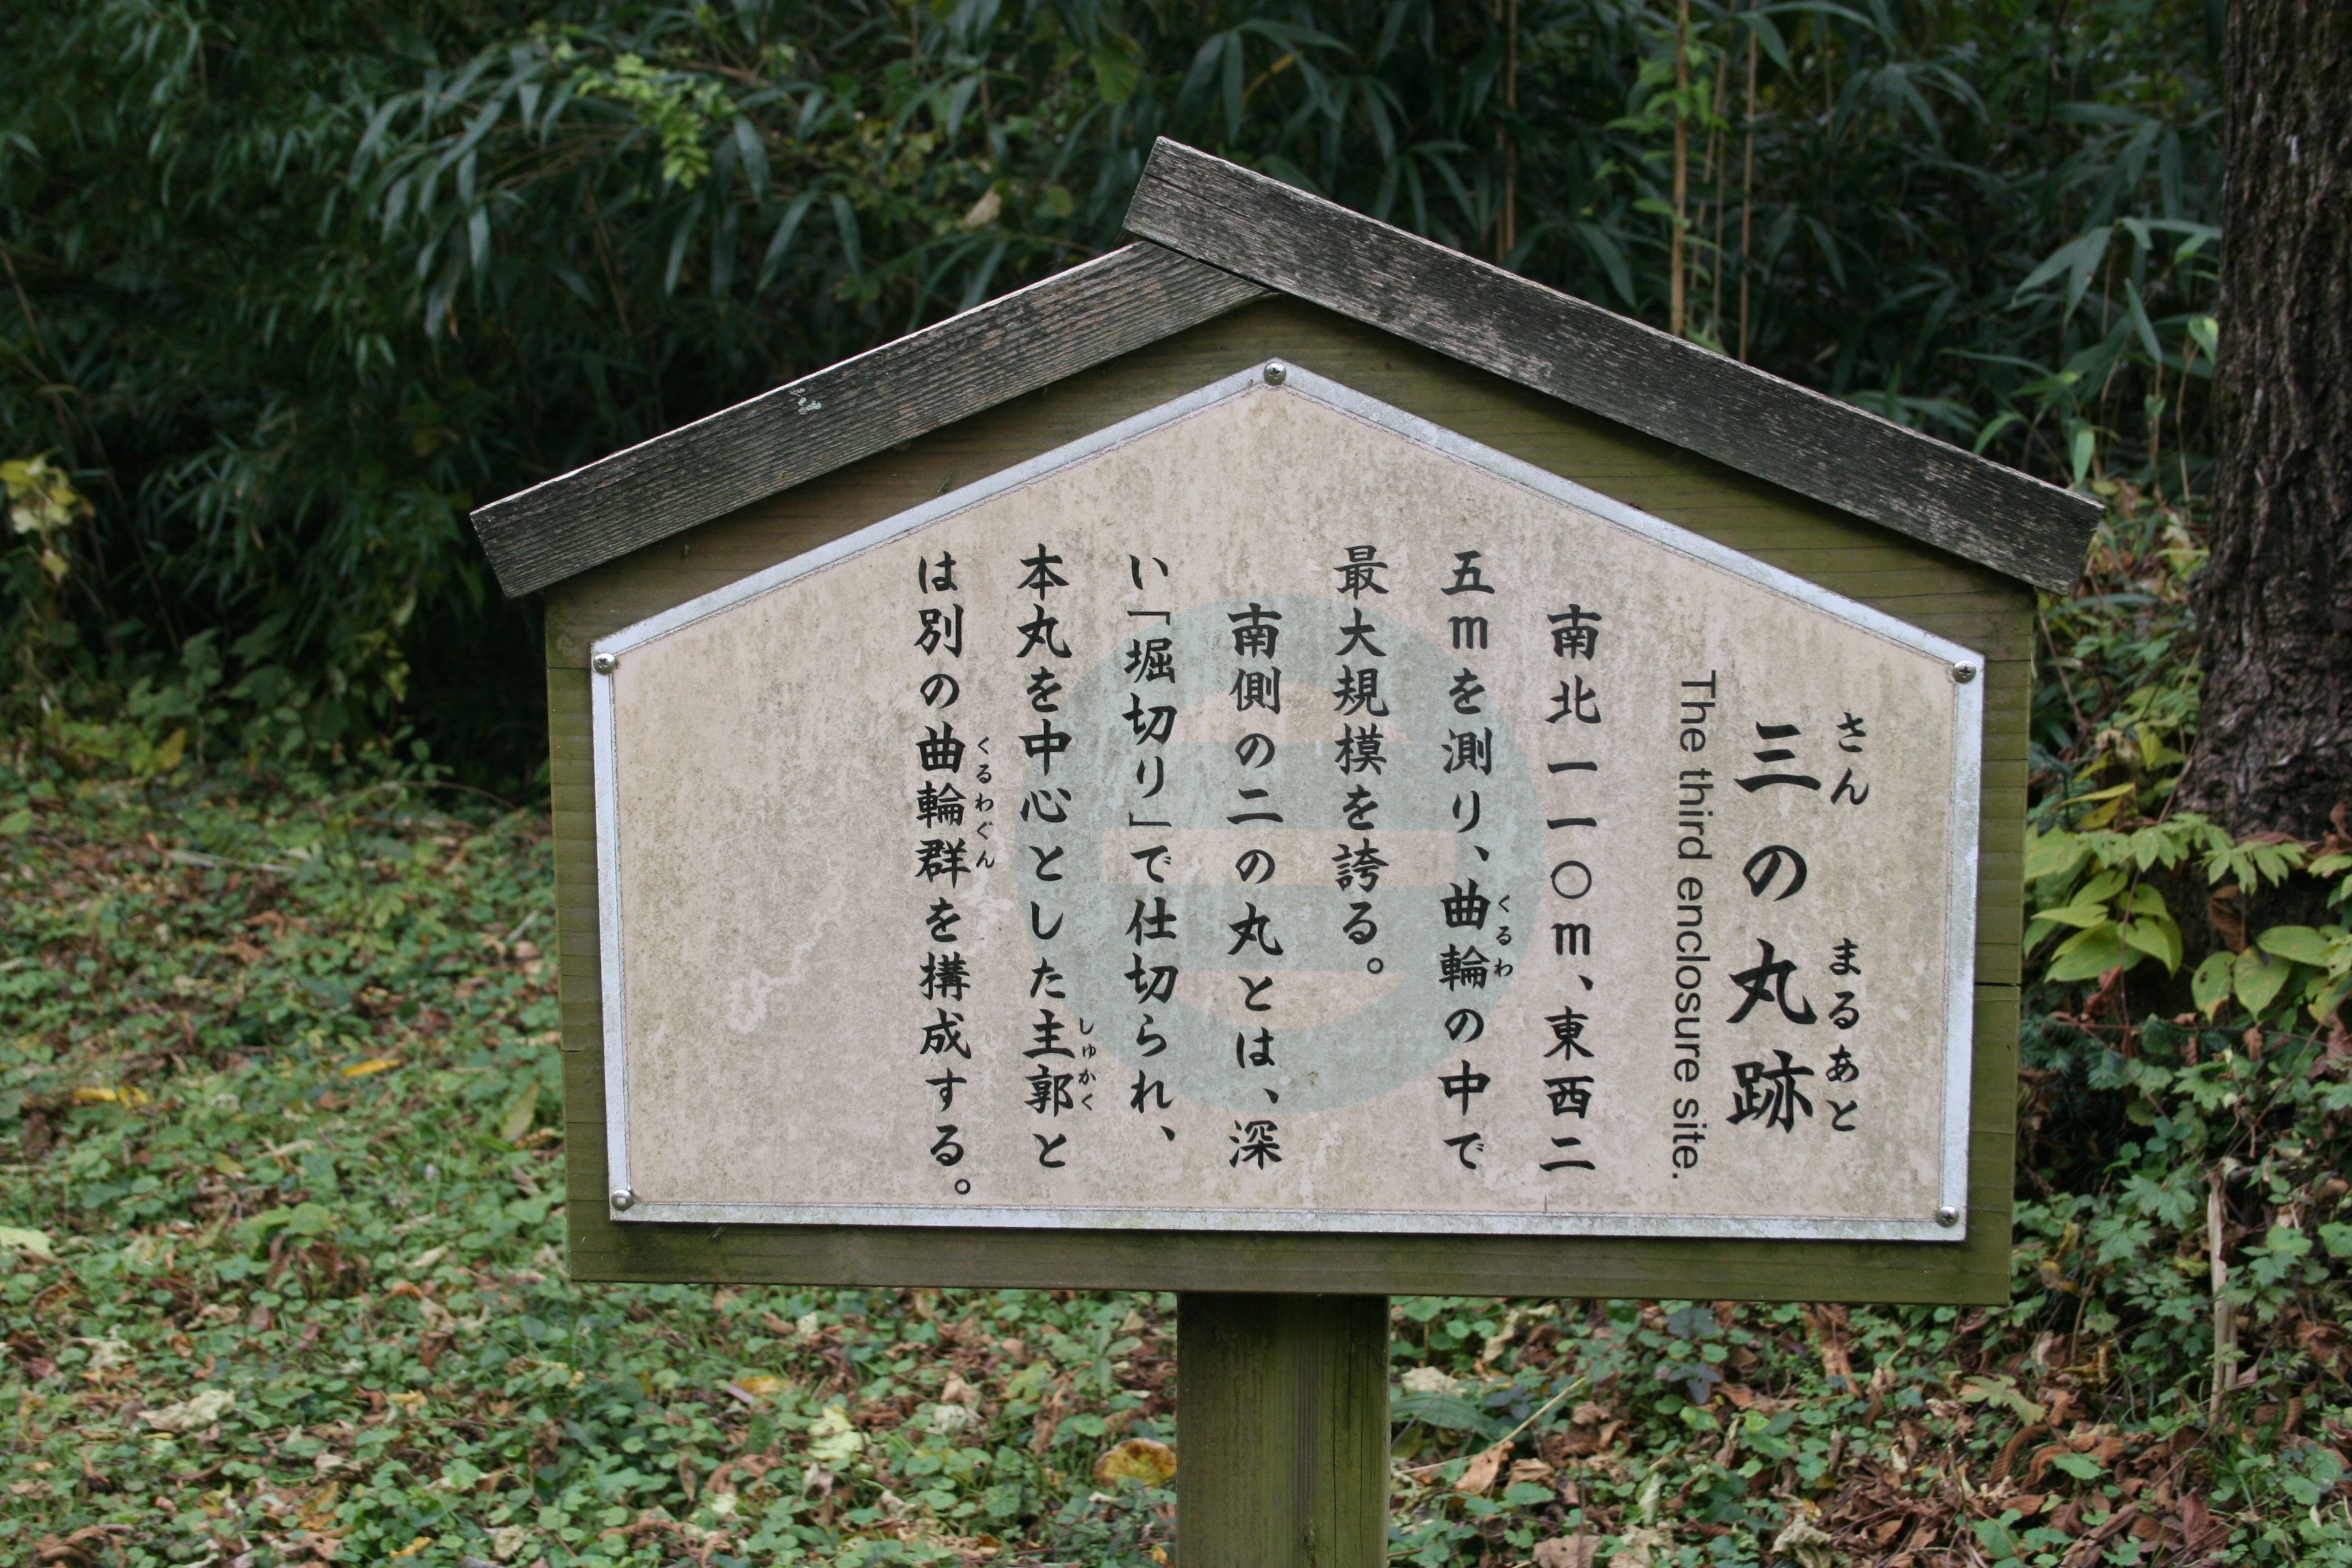 三の丸跡
さん まるあと
The third enclosure site.
南北一一〇m、東西二
五mを測り、曲輪の中で
くるわ
最大規模を誇る。
南側の二の丸とは、深
い「堀切り」で仕切られ、
本丸を中心とした主郭と
しゅかく
は別の曲輪群を構成する。
くるわぐん